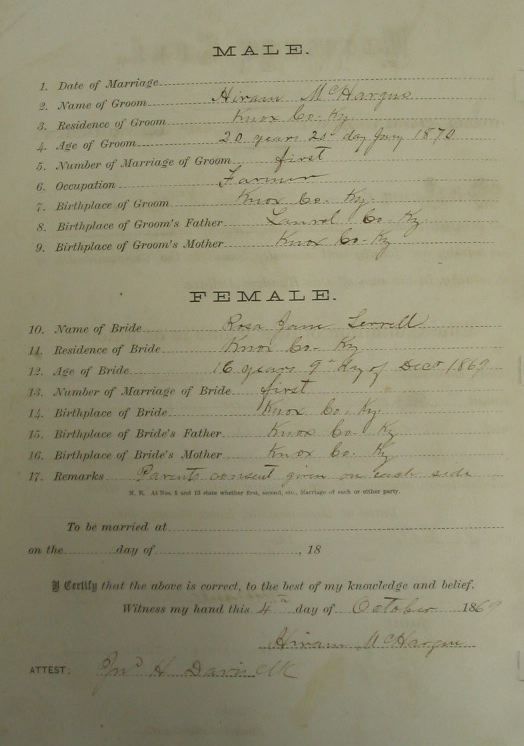 MALE.
1. Date of Marriage
2. Name of Groom Hiram McHargue
3. Residence of Groom Knox Co. Ky
4. Age of Groom 20 years 2st day Jany 1870
5. Number of Marriage of Groom first
6. Occupation Farmer
7. Birthplace of Groom Knox Co. Ky.
8. Birthplace of Groom's Father Laurel Co. Ky
9. Birthplace of Groom's Mother Knox Co. Ky
FEMALE.
10. Name of Bride Rosa Jane
11. Residence of Bride Knox Co. Ky
12. Age of Bride 16 years 9th day of Decr 1869
13. Number of Marriage of Bride first
14. Birthplace of Bride Knox Co. Ky.
15. Birthplace of Bride's Father Knox Co. Ky
16. Birthplace of Bride's Mother Knox Co. Ky
17. Remarks Parents consent given on each side
N. B. At Nos. 5 and 13 state whether first, second, etc., Marriage of each or either party.
To be married at
on the day of , 18
I Certify that the above is correct, to the best of my knowledge and belief.
Witness my hand this 4th day of October 1869
Hiram McHargue
ATTEST: Jno H Davis Clk